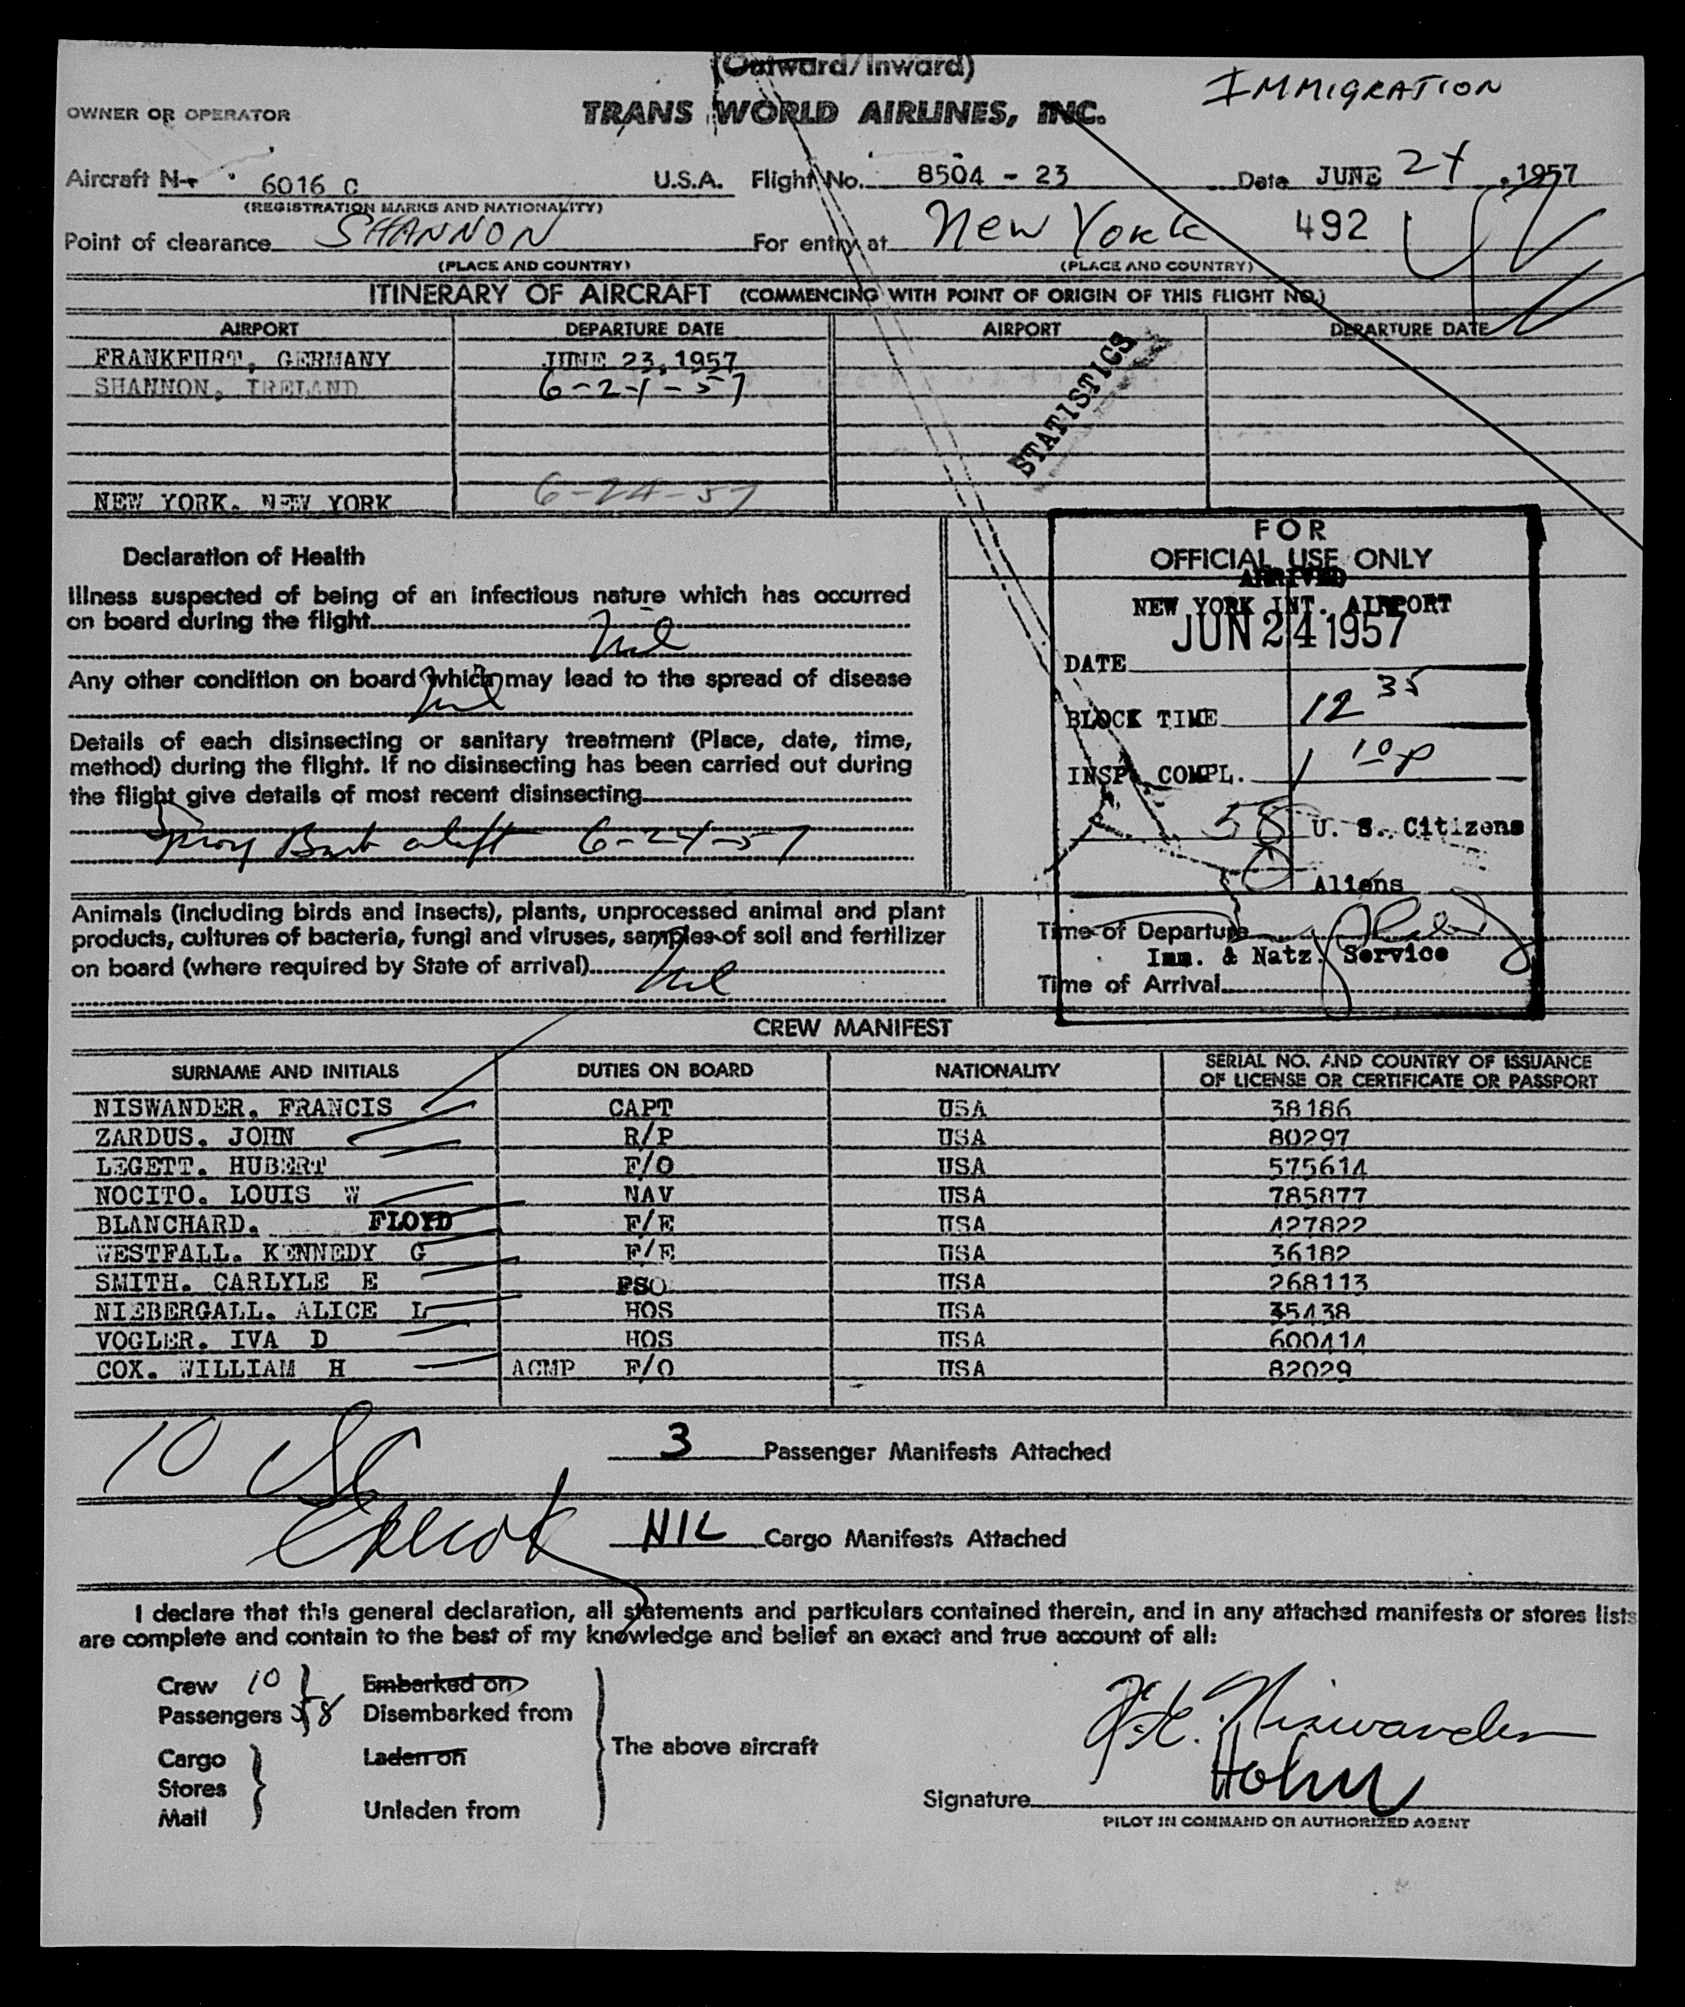 (Outward/Inward)
IMMIGRATION
OWNER OR OPERATOR
TRANS WORLD AIRLINES, INC.
Aircraft N- 6016 C U.S.A. Flight No. 8504 - 23 Date JUNE 24, 1957
(REGISTRATION MARKS AND NATIONALITY)
492
Point of clearance SHANNON For entry at New York
(PLACE AND COUNTRY) (PLACE AND COUNTRY)
ITINERARY OF AIRCRAFT (COMMENCING WITH POINT OF ORIGIN OF THIS FLIGHT NO.)
AIRPORT DEPARTURE DATE AIRPORT DEPARTURE DATE
FRANKFURT, GERMANY JUNE 23, 1957
SHANNON, IRELAND 6-24-57
STATISTICS
NEW YORK, NEW YORK 6-24-57
Declaration of Health
Illness suspected of being of an infectious nature which has occurred
on board during the flight
Nil
Any other condition on board which may lead to the spread of disease
Nil
Details of each disinsecting or sanitary treatment (Place, date, time,
method) during the flight. If no disinsecting has been carried out during
the flight give details of most recent disinsecting
6-24-57
FOR
OFFICIAL USE ONLY
ARRIVED
NEW YORK INT. AIRPORT
JUN 24 1957
DATE
BLOCK TIME 12 35
INSP. COMPL. 1 10 p
58 U. S. Citizens
0 Aliens
Animals (including birds and insects), plants, unprocessed animal and plant
products, cultures of bacteria, fungi and viruses, samples of soil and fertilizer
on board (where required by State of arrival)
Nil
Time of Departure
Imm. & Natz. Service
Time of Arrival
CREW MANIFEST
SURNAME AND INITIALS DUTIES ON BOARD NATIONALITY SERIAL NO. AND COUNTRY OF ISSUANCE
OF LICENSE OR CERTIFICATE OR PASSPORT
NISWANDER, FRANCIS CAPT USA 38186
ZARDUS, JOHN R/P USA 80297
LEGETT, HUBERT F/O USA 575614
NOCITO, LOUIS W NAV USA 785877
BLANCHARD, FLOYD F/E USA 427822
WESTFALL, KENNEDY G F/E USA 36182
SMITH, CARLYLE E PSO USA 268113
NIEBERGALL, ALICE L HOS USA 35438
VOGLER, IVA D HOS USA 600414
COX, WILLIAM H ACMP F/O USA 82029
10 USC
3 Passenger Manifests Attached
NIL Cargo Manifests Attached
I declare that this general declaration, all statements and particulars contained therein, and in any attached manifests or stores lists
are complete and contain to the best of my knowledge and belief an exact and true account of all:
Crew 10 Embarked on
Passengers 58 Disembarked from
The above aircraft
Cargo Laden on
Stores
Mail Unladen from
F. E. Niswander
Hohn
Signature
PILOT IN COMMAND OR AUTHORIZED AGENT